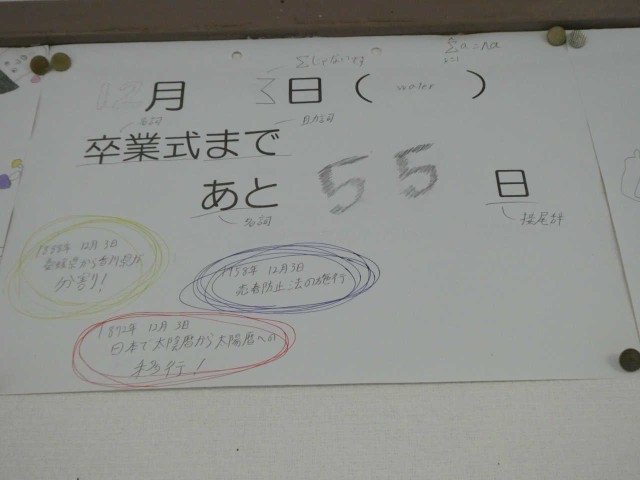 Σじゃないです
Σa=na
12月 3日( water )
名詞
助詞
卒業式まで
あと 55 日
名詞
接尾辞
1888年 12月3日
愛媛県から香川県が
分割り!
1958年 12月3日
売春防止法の施行
1872年 12月3日
日本で太陰暦から太陽暦への
移行!